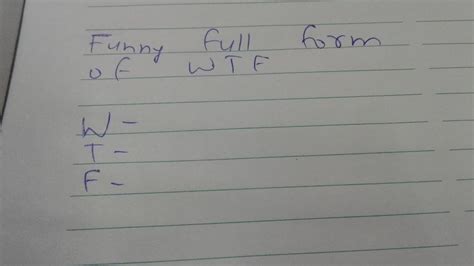 Funny full form
of WTF
W -
T -
F -